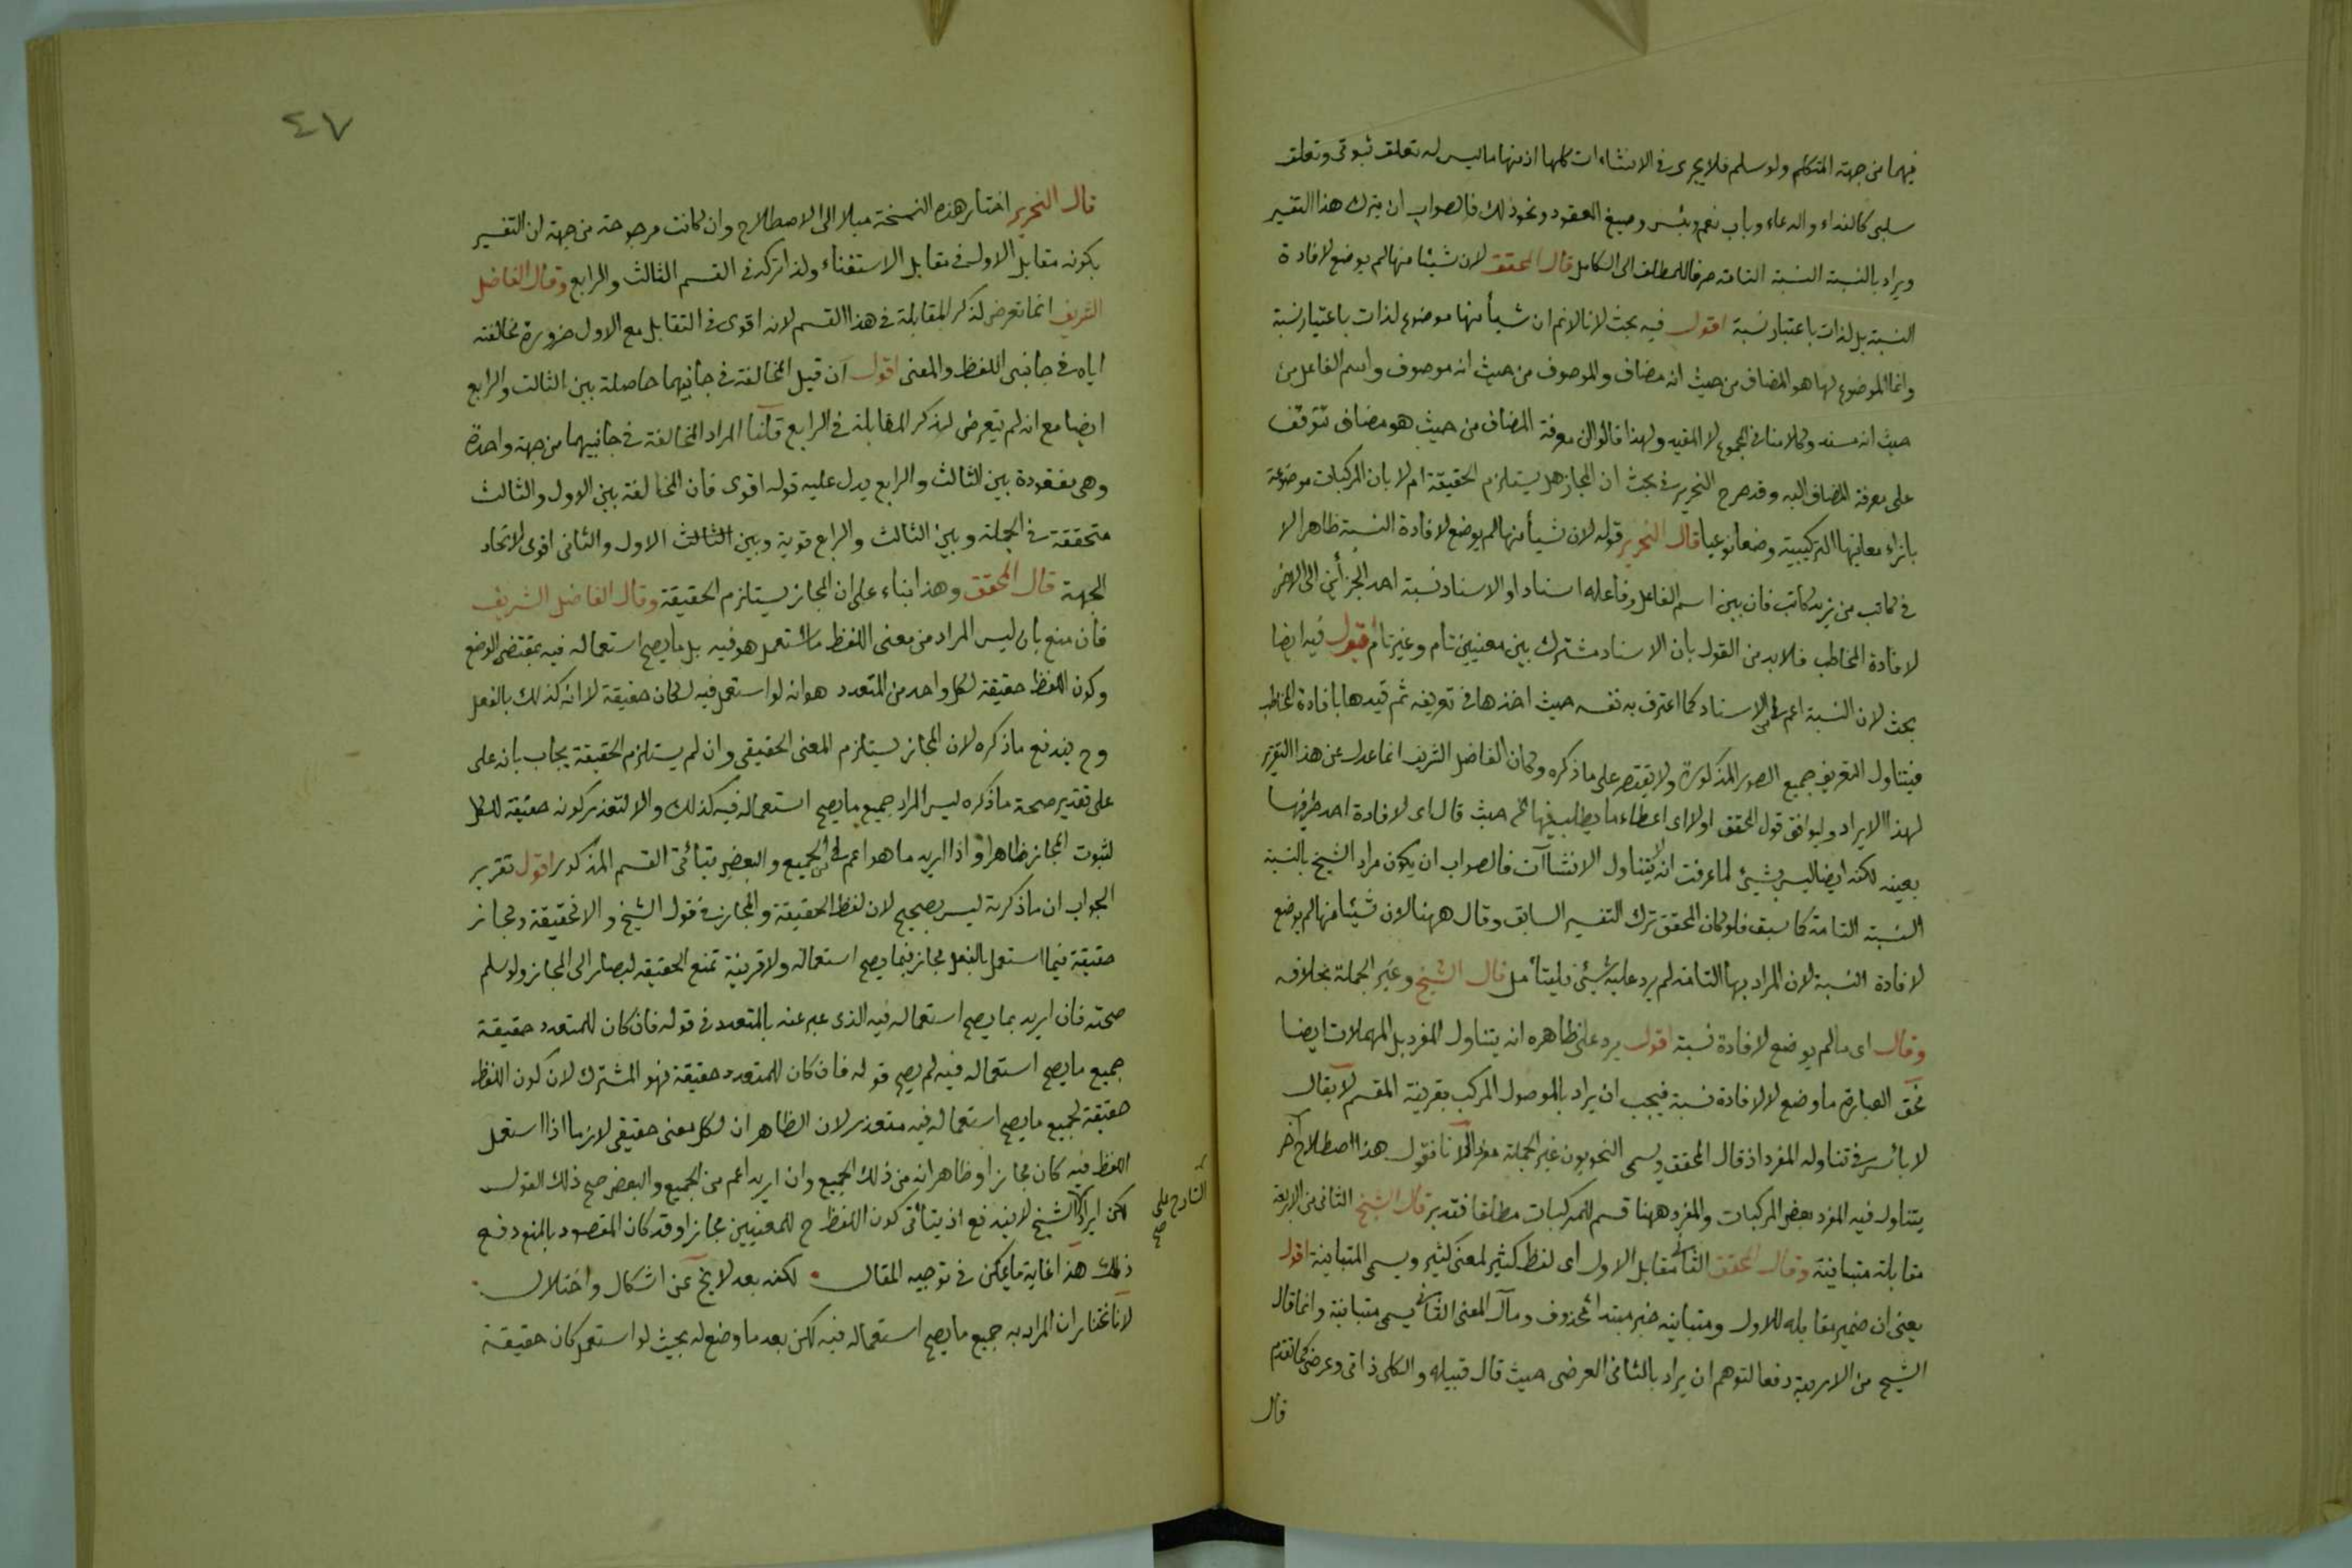 فيهما من جهة المتكلم ولو سلم فلا يجرى فى الانشاءات كلها اذ منها ما ليس له تعلق ثبوتى وتعلق
سلبى كالنداء والدعاء وباب نعم وبئس وصيغ العقود ونحو ذلك فالصواب ان يترك هذا التفسير
ويراد بالنسبة النسبة التامة صرفا للمطلق الى الكامل قال المحقق لان شيئا منها لم يوضع لافادة
النسبة بل لذات باعتبار نسبة اقول فيه بحث لانا لانم ان شيأ منها موضوع لذات باعتبار نسبة
وانما الموضوع لها هو المضاف من حيث انه مضاف والموصوف من حيث انه موصوف واسم الفاعل من
حيث انه مسند وكلامنا فى المجموع لا المقيد ولهذا قالوا ان معرفة المضاف من حيث هو مضاف تتوقف
على معرفة المضاف اليه وقد صرح النحرير فى بحث ان المجاز هل يستلزم الحقيقة ام لا بان المركبات موضوعة
بازاء معانيها التركيبية وضعا نوعيا قال النحرير قوله لان شيأ منها لم يوضع لافادة النسبة ظاهر الا
فى كاتب من زيد كاتب فان بين اسم الفاعل وفاعله اسنادا والاسناد نسبة احد الجزأين الى الاخر
لافادة المخاطب فلابد من القول بان الاسناد مشترك بين معنيين تام وغير تام اقول فيه ايضا
بحث لان النسبة اعم من الاسناد كما اعترف به نفسه حيث اخذها فى تعريفه ثم قيدها بافادة المخاطب
فيتناول التعريف جميع الصور المذكورة ولا يقتصر على ما ذكره وكان الفاضل الشريف انما عدل عن هذا التقرير
لهذا الايراد وليوافق قول المحقق اولا اى اعطاء ما يطلب فيها حيث قال اى لافادة احد طرفيها
بعينه لكنه ايضا ليس بشئ لما عرفت انه لا يتناول الانشاآت فالصواب ان يكون مراد الشيخ بالنسبة
النسبة التامة كما سبق فلو كان المحقق ترك التفسير السابق وقال ههنا لان شيئا منها لم يوضع
لافادة النسبة لان المراد بها التامة لم يرد عليه شئ فليتأمل قال الشيخ وغير الجملة بخلافه
وقال اى مالم يوضع لافادة نسبة اقول يرد على ظاهره انه يتناول المفرد بل المهملات ايضا
فحق العبارة ما وضع لا لافادة نسبة فيجب ان يراد بالموصول المركب بقرينة المقسم لا يقال
لا بأس فى تناوله المفرد اذ قال المحقق ويسمى النحويون غير الجملة مفردا لانا نقول هذا اصطلاح اخر
يتناول فيه المفرد بعض المركبات والمفرد ههنا قسم للمركبات مطلقا فتدبر قال الشيخ الثانى من الاربعة
مقابله متباينة وقال المحقق الثانى مقابل الاول اى لفظ كثير لمعنى كثير ويسمى المتباينة اقول
يعنى ان ضمير مقابله للاول ومتباينة خبر مبتدأ محذوف ومآل المعنى الثانى يسمى متباينة وانما قال
الشيخ من الاربعة دفعا لتوهم ان يراد بالثانى العرضى حيث قال قبيله والكلى ذاتى وعرضى كما تقدم
قال
٤٧
قال النحرير اختار هذه النسخة ميلا الى الاصطلاح وان كانت مرجوحة من جهة ان التفسير
بكونه مقابل الاول فى مقابل الاستغناء ولذا تركه فى القسم الثالث والرابع وقال الفاضل
الشريف انما تعرض لذكر المقابلة فى هذا القسم لانه اقوى فى التقابل مع الاول ضرورة مخالفته
اياه فى جانبى اللفظ والمعنى اقول ان قيل المخالفة فى جانبيهما حاصلة بين الثالث والرابع
ايضا مع انه لم يتعرض لذكر المقابلة فى الرابع قلنا المراد المخالفة فى جانبيهما من جهة واحدة
وهى مفقودة بين الثالث والرابع يدل عليه قوله اقوى فان المخالفة بين الاول والثالث
متحققة فى الجملة وبين الثالث والرابع قوية وبين الثالث الاول والثانى اقوى لاتحاد
الجهة قال المحقق وهذا بناء على ان المجاز يستلزم الحقيقة وقال الفاضل الشريف
فان منع بان ليس المراد من معنى اللفظ ما استعمل هو فيه بل ما يصح استعماله فيه بمقتضى الوضع
وكون اللفظ حقيقة لكل واحد من المتعدد هو انه لو استعمل فيه لكان حقيقة لا انه كذلك بالفعل
وح يندفع ما ذكره لان المجاز يستلزم المعنى الحقيقى وان لم يستلزم الحقيقة يجاب بانه على
على تقدير صحة ما ذكره ليس المراد جميع ما يصح استعماله فيه كذلك والا لتعذر كونه حقيقة للكل
لثبوت المجاز ظاهرا واذا اريد ما هو اعم من الجميع والبعض يتأتى القسم المذكور اقول تقرير
الجواب ان ما ذكرته ليس بصحيح لان لفظ الحقيقة والمجاز فى قول الشيخ والا فحقيقة ومجاز
حقيقة فيما استعمل بالفعل مجاز فيما يصح استعماله ولا قرينة تمنع الحقيقة ليصار الى المجاز ولو سلم
صحته فان اريد بما يصح استعماله فيه الذى عبر عنه بالمتعدد فى قوله فان كان للمتعدد حقيقة
جميع ما يصح استعماله فيه لم يصح قوله فان كان للمتعدد حقيقة فهو المشترك لان كون اللفظ
حقيقة لجميع ما يصح استعماله فيه متعذر لان الظاهر ان لكل معنى حقيقى لازما اذا استعمل
اللفظ فيه كان مجازا وظاهر انه من ذلك الجميع وان اريد اعم من الجميع والبعض صح ذلك القول
لكن ايراد الشيخ لا يندفع اذ يتأتى كون اللفظ ح للمعنيين مجازا وقد كان المقصود بالمنع دفع
الشارح على
صح
ذلك هذا غاية ما يمكن فى توجيه المقال لكنه بعد لا يخ عن اشكال واختلال
لانا نختار ان المراد به جميع ما يصح استعماله فيه لكن بعد ما وضع له بحيث لو استعمل كان حقيقة